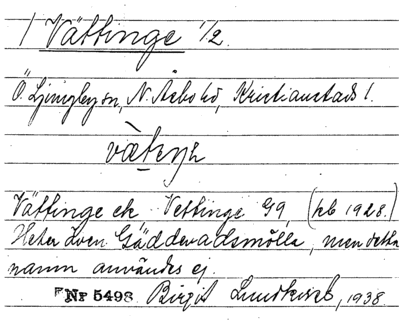 / Vättinge 1/2.
Ö. Ljungby sn, N. Åsbo hd, Kristianstads l.
Vättinge ek Vettinge G9, (kb 1928.)
Heter även Gäddevadsmölla, men detta
namn användes ej.
Nr 5498 Birgit 1938